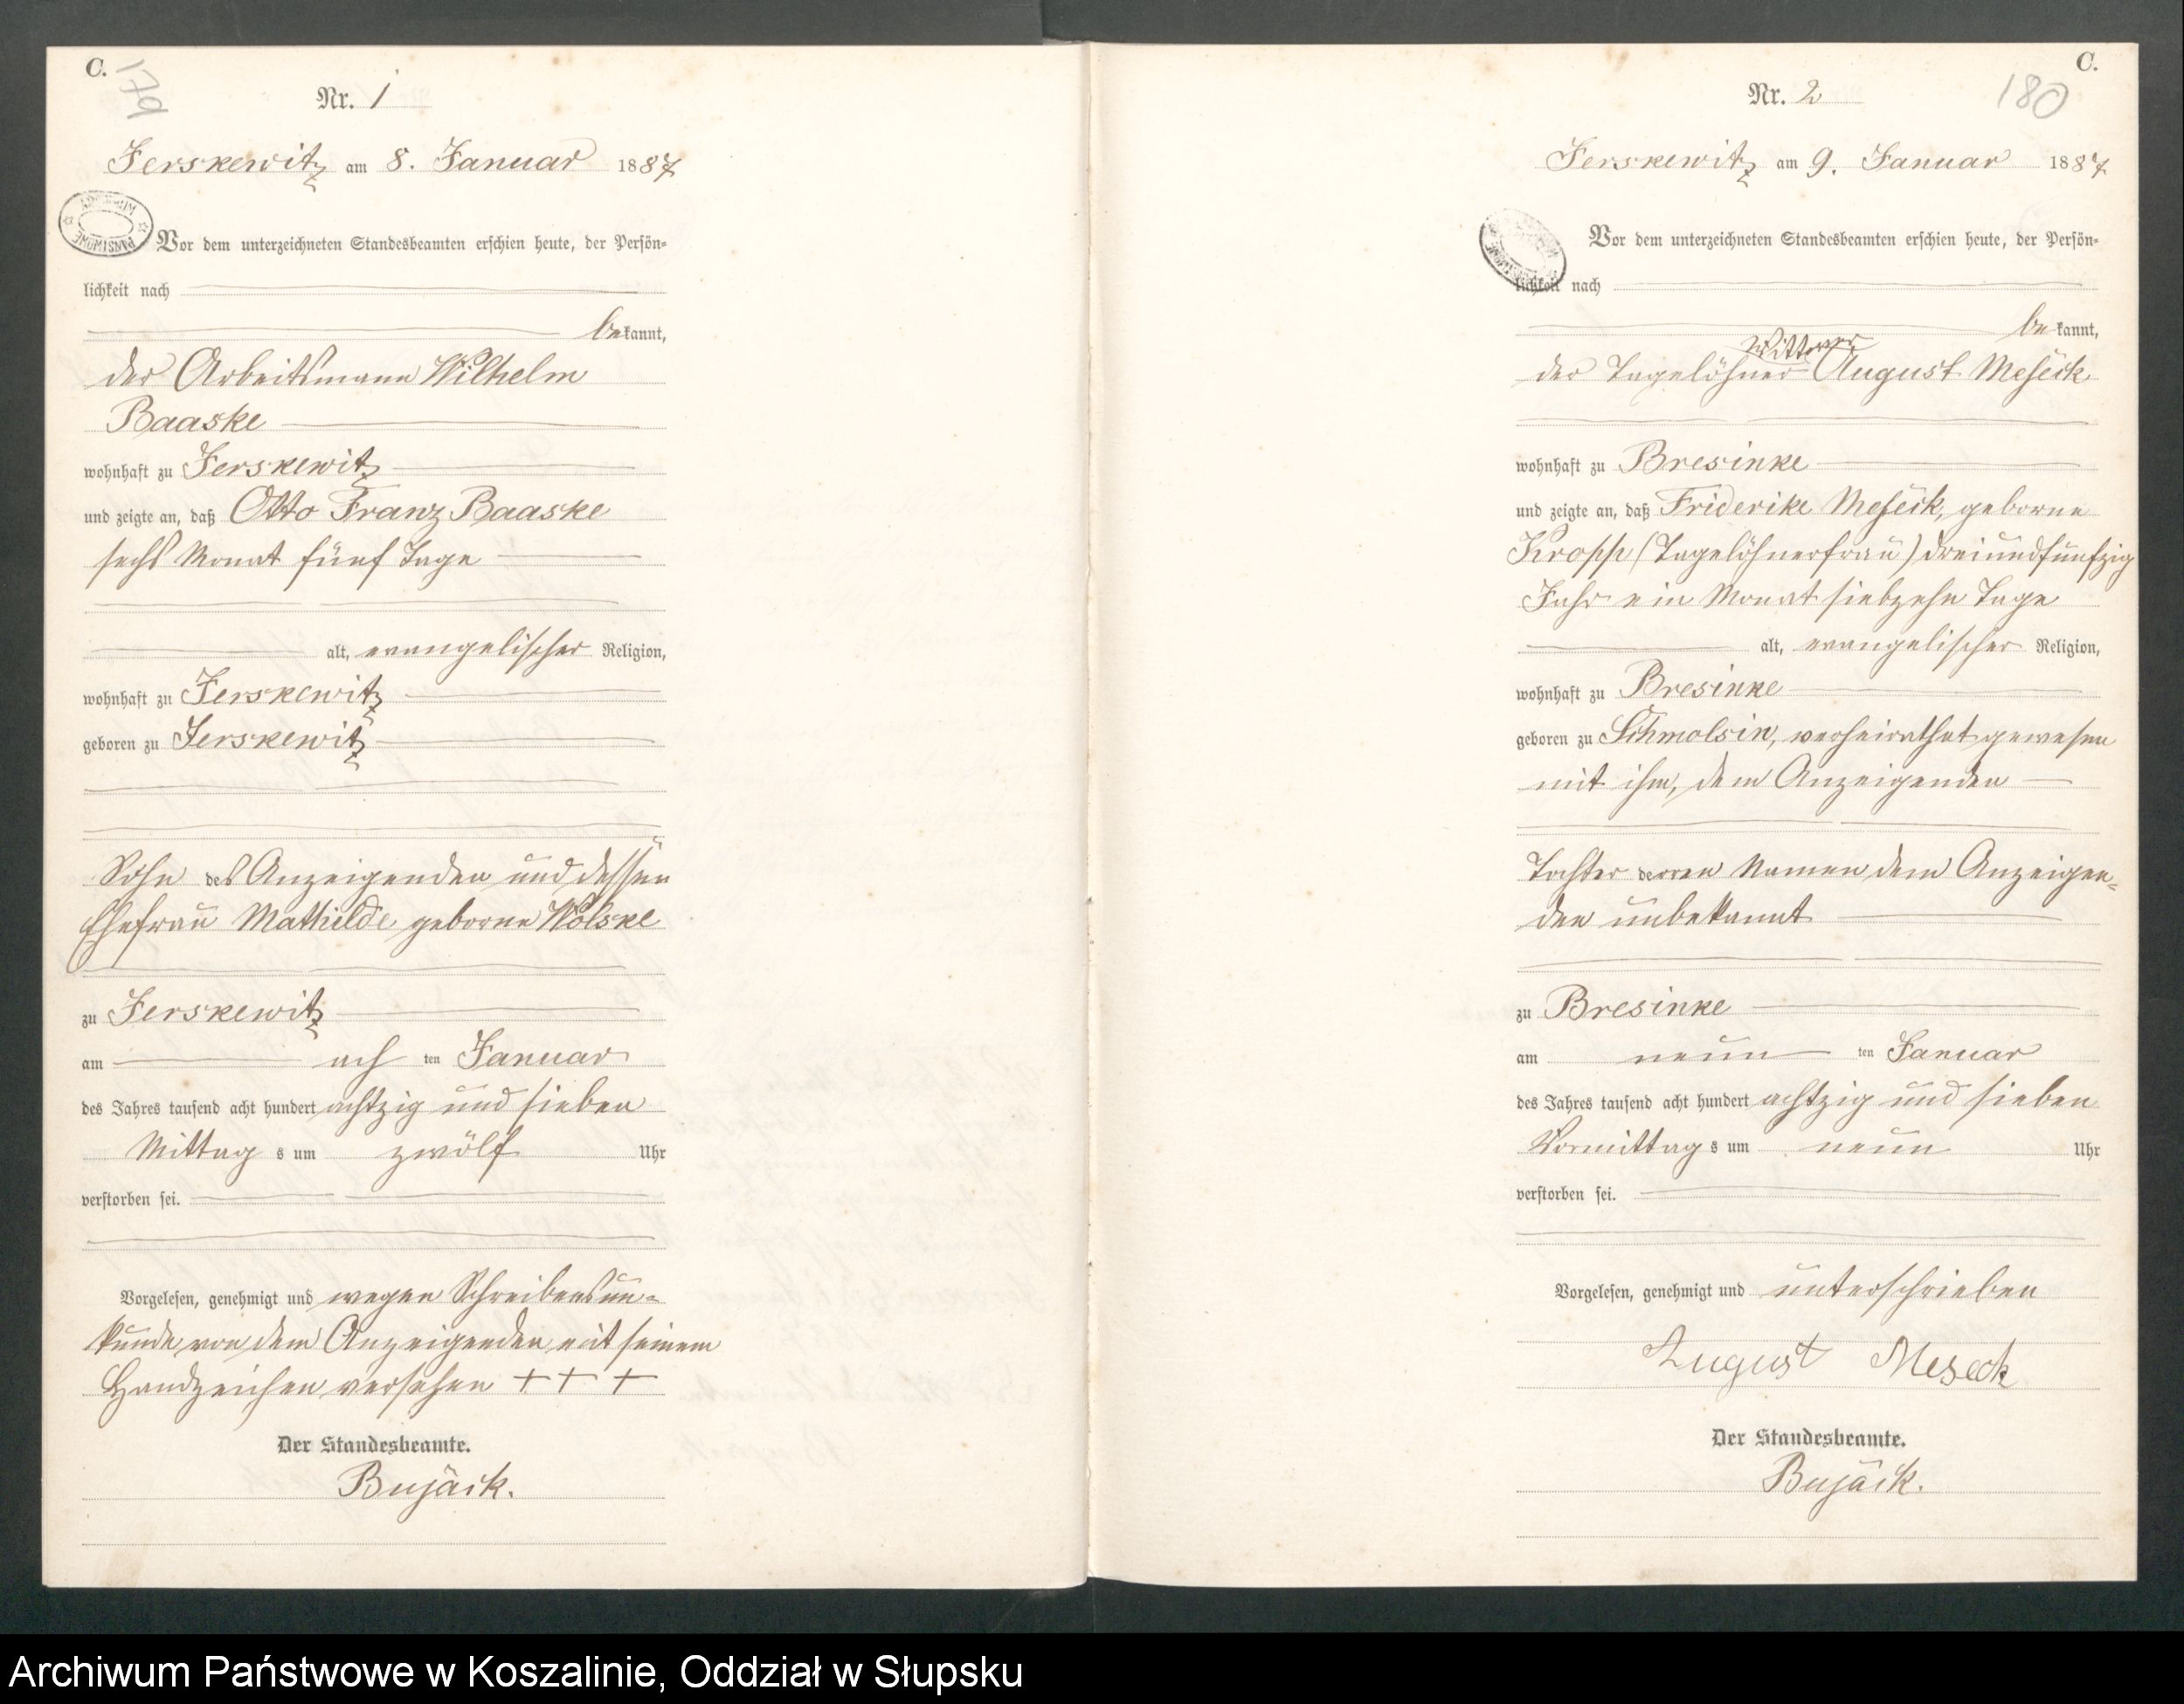 C.
179
Nr. 1
Jerskewitz am 8. Januar 1887
ARCHIWUM PAŃSTWOWE
Vor dem unterzeichneten Standesbeamten erschien heute, der Persön-
lichkeit nach
bekannt,
der Arbeitsmann Wilhelm
Baaske
wohnhaft zu Jerskewitz
und zeigte an, daß Otto Franz Baaske
sechs Monat fünf Tage
alt, evangelischer Religion,
wohnhaft zu Jerskewitz
geboren zu Jerskewitz
Sohn des Anzeigenden und dessen
Ehefrau Mathilde geborne Wolske
zu Jerskewitz
am ach ten Januar
des Jahres tausend acht hundert achtzig und sieben
Mittag s um zwölf Uhr
verstorben sei.
Vorgelesen, genehmigt und wegen Schreibensun-
kunde von dem Anzeigenden mit seinem
Handzeichen versehen + + +
Der Standesbeamte.
Bujack.
C.
180
Nr. 2
Jerskewitz am 9. Januar 1887
Vor dem unterzeichneten Standesbeamten erschien heute, der Persön-
lichkeit nach
bekannt,
Wittwer
der Tagelöhner August Meseck
wohnhaft zu Bresinke
und zeigte an, daß Friderike Meseck, geborne
Kropp (Tagelöhnerfrau) dreiundfünfzig
Jahr ein Monat siebzehn Tage
alt, evangelischer Religion,
wohnhaft zu Bresinke
geboren zu Schmolsin, verheirathet gewesen
mit ihm, dem Anzeigenden
Tochter derren Namen dem Anzeigen-
den unbekannt
zu Bresinke
am neun ten Januar
des Jahres tausend acht hundert achtzig und sieben
Vormittag s um neun Uhr
verstorben sei.
Vorgelesen, genehmigt und unterschrieben
August Meseck
Der Standesbeamte.
Bujack.
Archiwum Państwowe w Koszalinie, Oddział w Słupsku